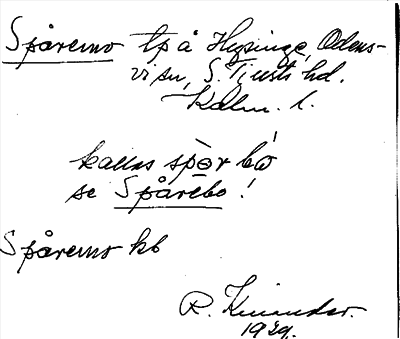 Spåremo tp å Hysinge, Odens-
vi sn, S. Tjust hd.
Kalm. l.
kallas spør bo
se Spårebo!
Spåremo kb
R. Kinander.
1929.